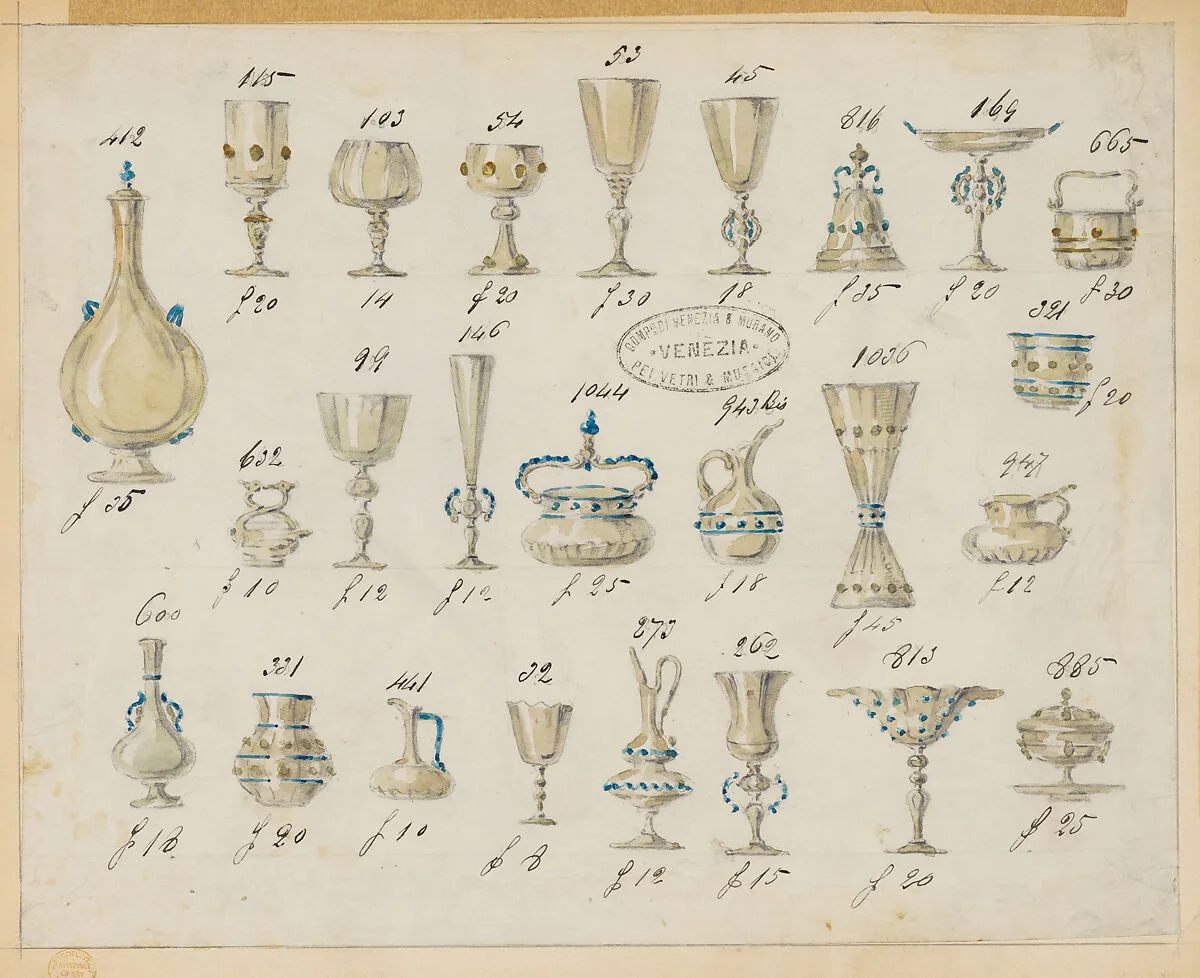 412
f 35
115
f 20
103
14
54
f 20
53
f 30
45
18
816
f 35
169
f 20
665
f 30
COMP. DI VENEZIA & MURANO
· VENEZIA ·
PEI VETRI & MUSAICI
321
f 20
632
f 10
99
f 12
146
f 12
1044
f 25
943 Bis
f 18
1036
f 45
947
f 12
600
f 18
331
f 20
441
f 10
32
f 8
273
f 12
262
f 15
813
f 20
885
f 25
OF ART